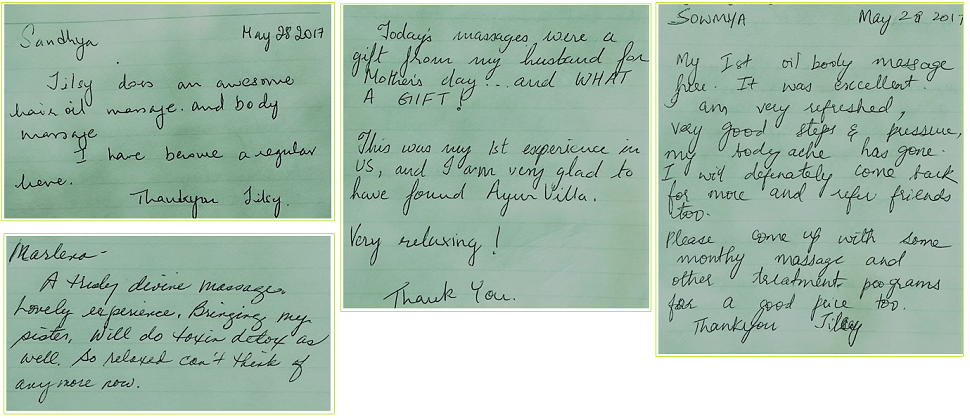 Sandhya May 28 2017
Jilsy does an awesome
hair oil massage. and body
massage
I have become a regular
here.
Thankyou Jilsy.
Marlena-
A truly divine massage.
Lovely experience. Bringing my
sister. Will do toxin detox as
well. So relaxed can't think of
any more now.
Today's massages were a
gift from my husband for
Mother's day... and WHAT
A GIFT!
This was my 1st experience in
US, and I am very glad to
have found Ayur Villa.
Very relaxing!
Thank You.
SOWMYA May 28 2017
My Ist oil body massage
here. It was excellent.
I am very refreshed,
very good steps & pressure,
my body ache has gone.
I will definately come back
for more and refer friends
too.
Please come up with some
monthy massage and
other treatment programs
for a good price too.
Thankyou Jilsy